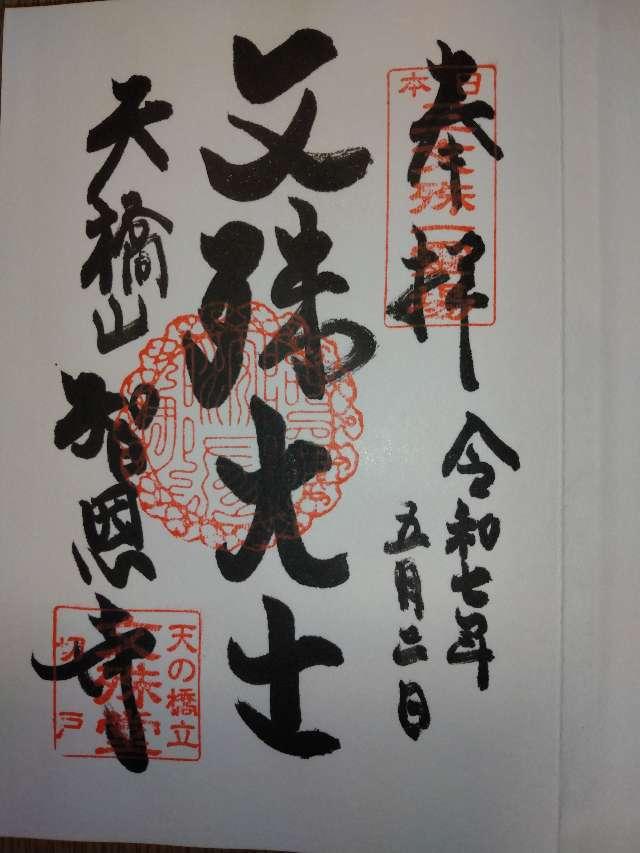 奉拝
日本三文殊
令和七年
五月二日
文殊大士
天橋山
智恩寺
天の橋立
文殊堂
切戸